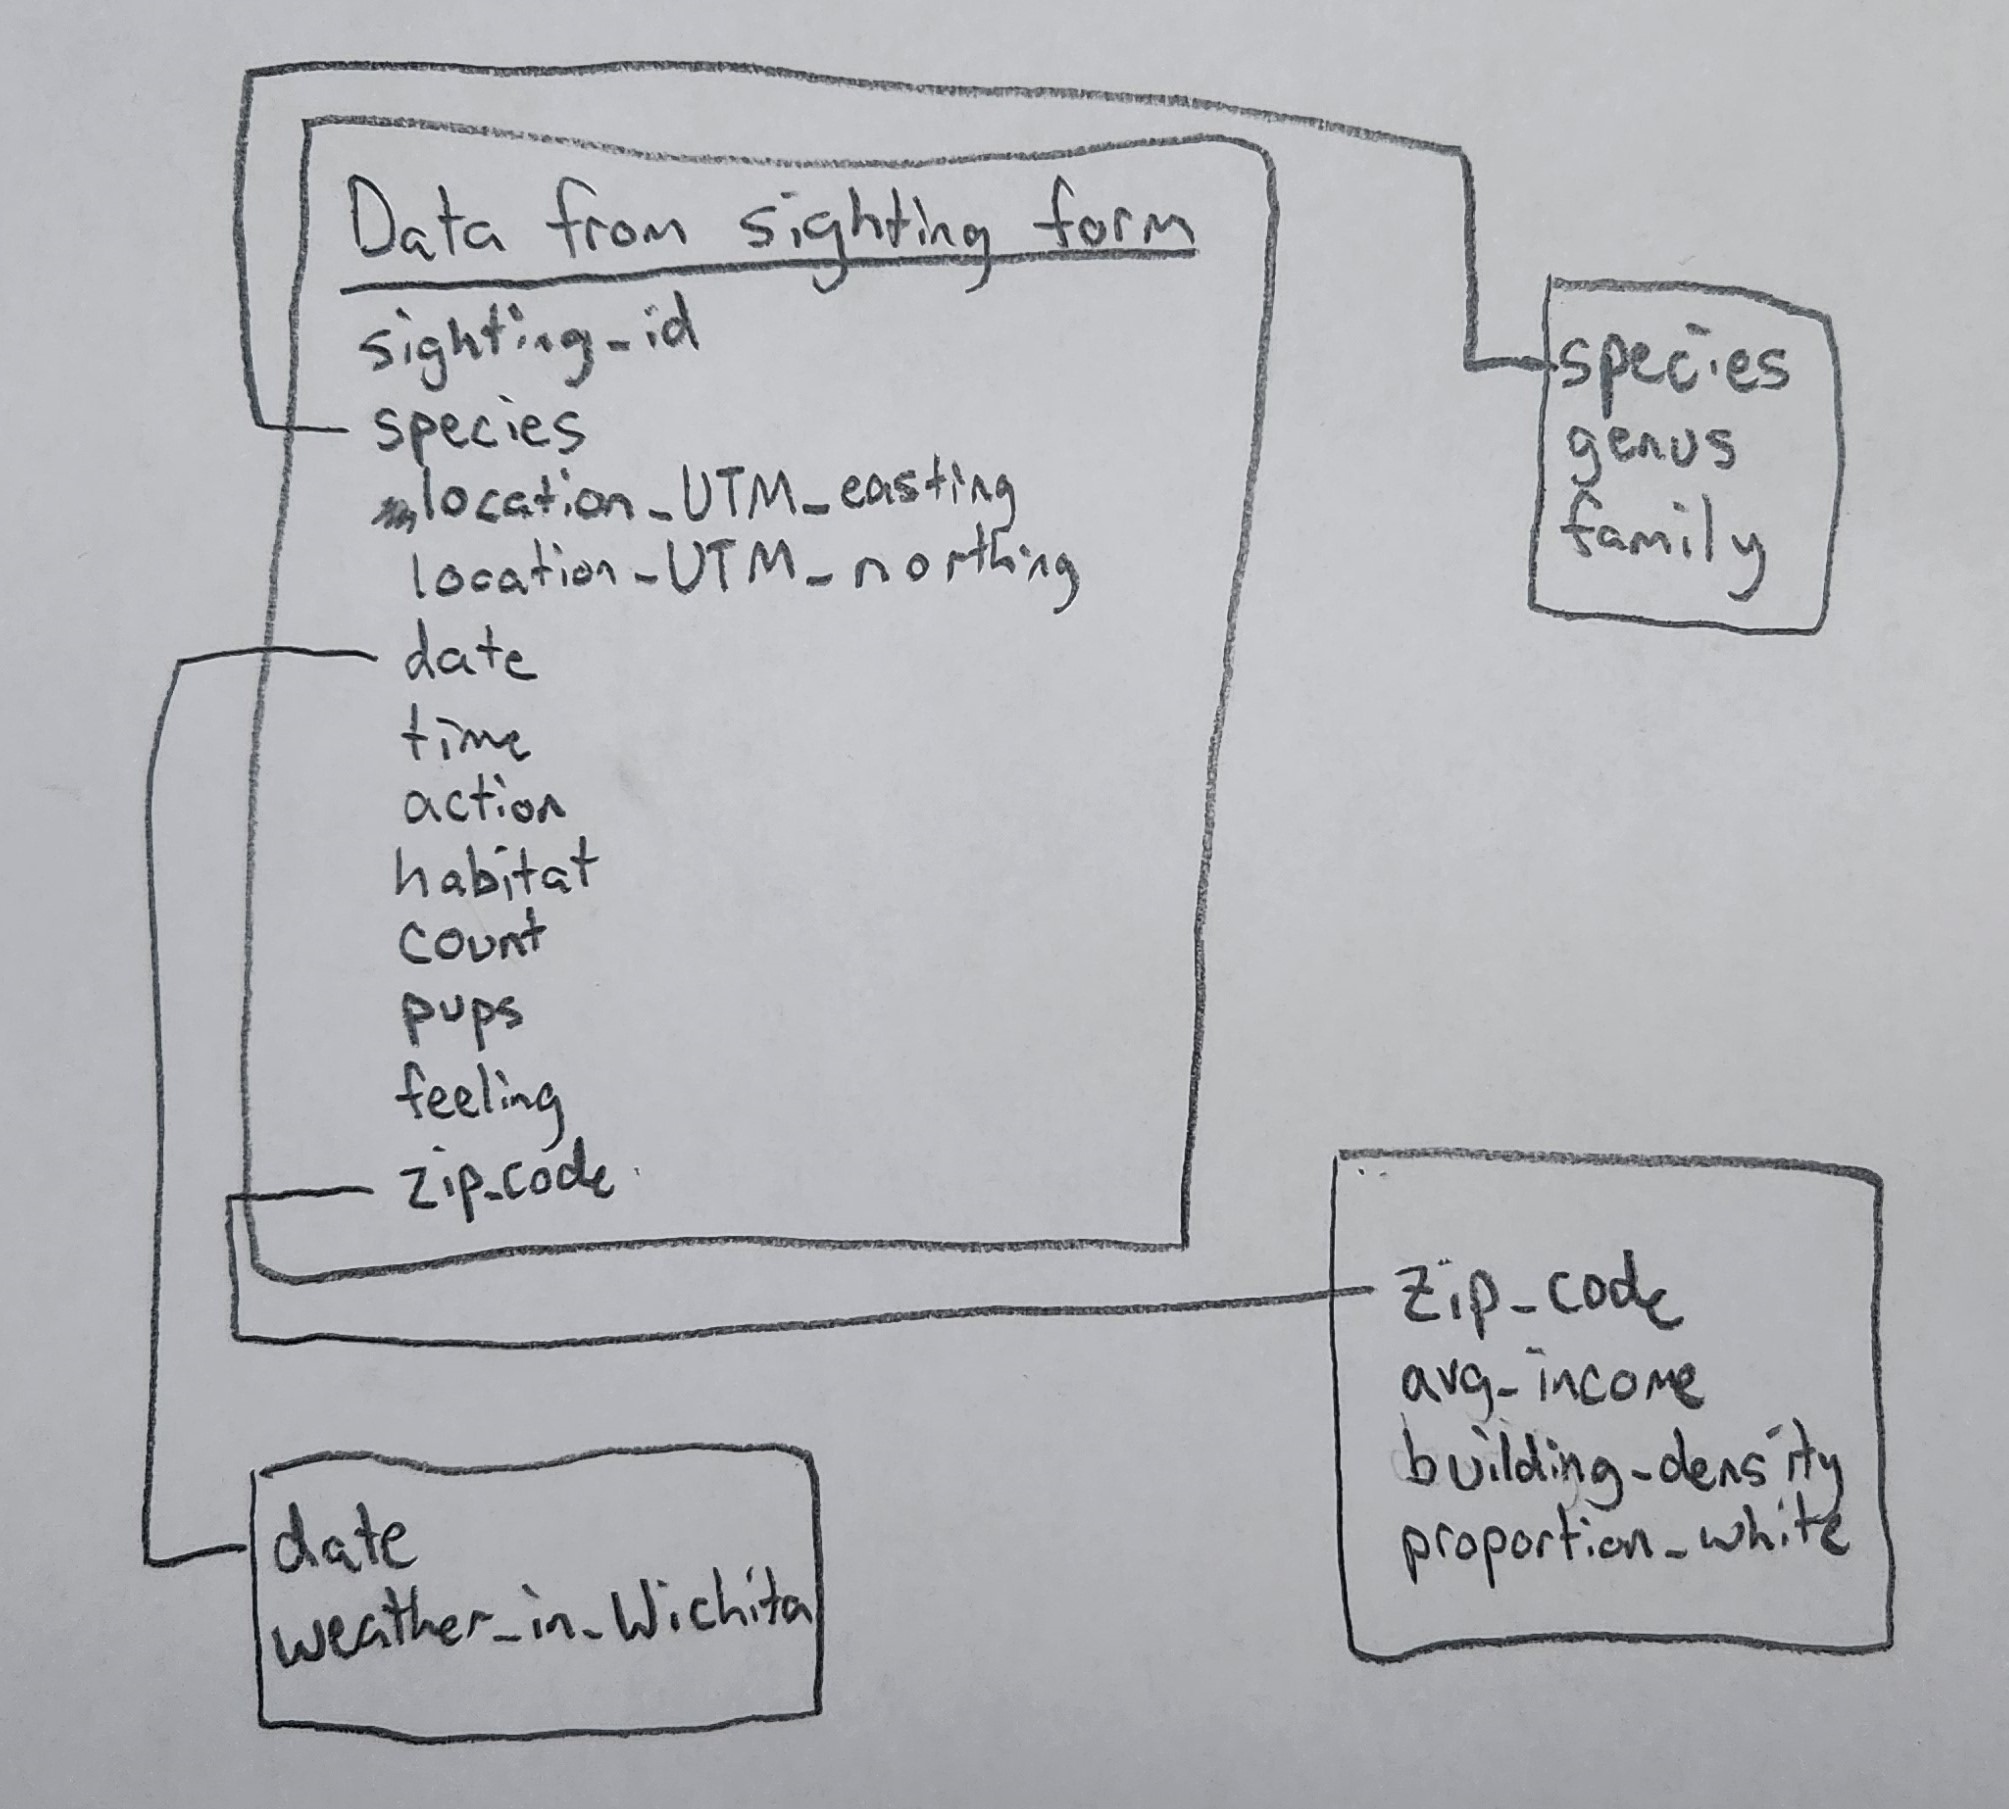 Data from sighting form
sighting_id
species
location_UTM_easting
location_UTM_northing
date
time
action
habitat
count
pups
feeling
zip_code
species
genus
family
zip_code
avg_income
building_density
proportion_white
date
weather_in_Wichita